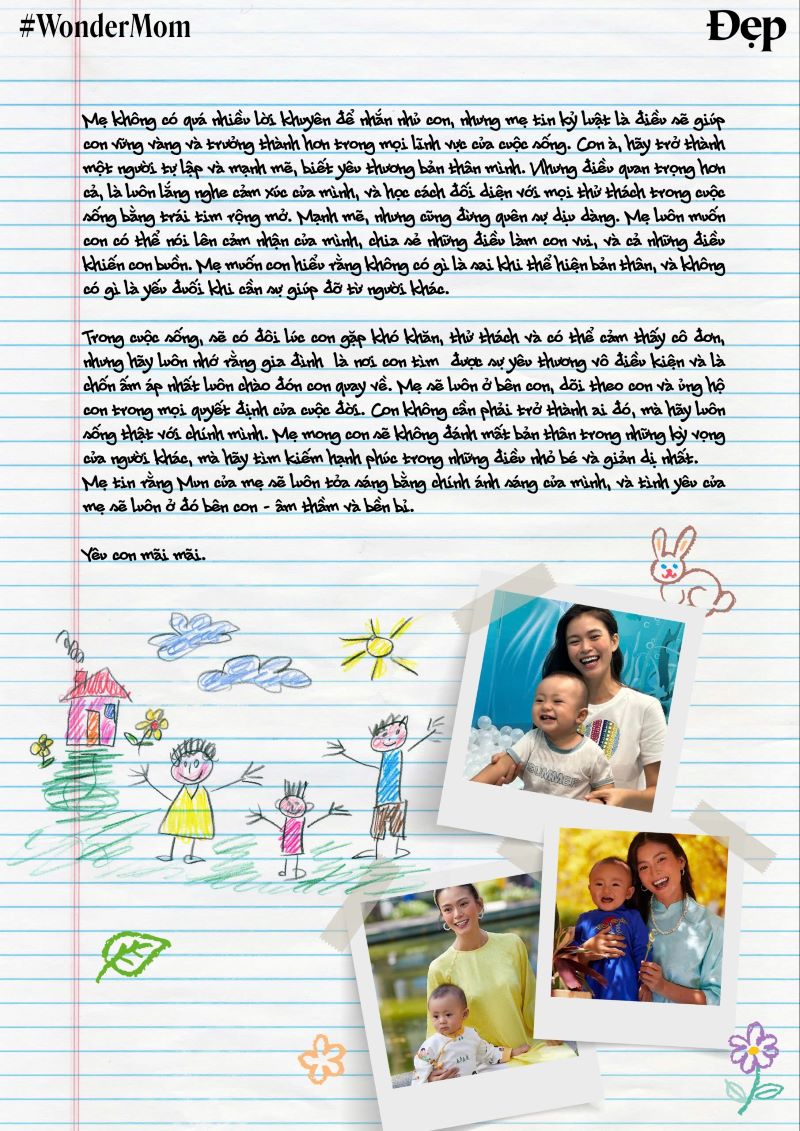 #WonderMom
Đẹp
Mẹ không có quá nhiều lời khuyên để nhắn nhủ con, nhưng mẹ tin kỷ luật là điều sẽ giúp
con vững vàng và trưởng thành hơn trong mọi lĩnh vực của cuộc sống. Con à, hãy trở thành
một người tự lập và mạnh mẽ, biết yêu thương bản thân mình. Nhưng điều quan trọng hơn
cả, là luôn lắng nghe cảm xúc của mình, và học cách đối diện với mọi thử thách trong cuộc
sống bằng trái tim rộng mở. Mạnh mẽ, nhưng cũng đừng quên sự dịu dàng. Mẹ luôn muốn
con có thể nói lên cảm nhận của mình, chia sẻ những điều làm con vui, và cả những điều
khiến con buồn. Mẹ muốn con hiểu rằng không có gì là sai khi thể hiện bản thân, và không
có gì là yếu đuối khi cần sự giúp đỡ từ người khác.
Trong cuộc sống, sẽ có đôi lúc con gặp khó khăn, thử thách và có thể cảm thấy cô đơn,
nhưng hãy luôn nhớ rằng gia đình là nơi con tìm được sự yêu thương vô điều kiện và là
chốn ấm áp nhất luôn chào đón con quay về. Mẹ sẽ luôn ở bên con, dõi theo con và ủng hộ
con trong mọi quyết định của cuộc đời. Con không cần phải trở thành ai đó, mà hãy luôn
sống thật với chính mình. Mẹ mong con sẽ không đánh mất bản thân trong những kỳ vọng
của người khác, mà hãy tìm kiếm hạnh phúc trong những điều nhỏ bé và giản dị nhất.
Mẹ tin rằng Mun của mẹ sẽ luôn tỏa sáng bằng chính ánh sáng của mình, và tình yêu của
mẹ sẽ luôn ở đó bên con - âm thầm và bền bỉ.
Yêu con mãi mãi.
SUMMER